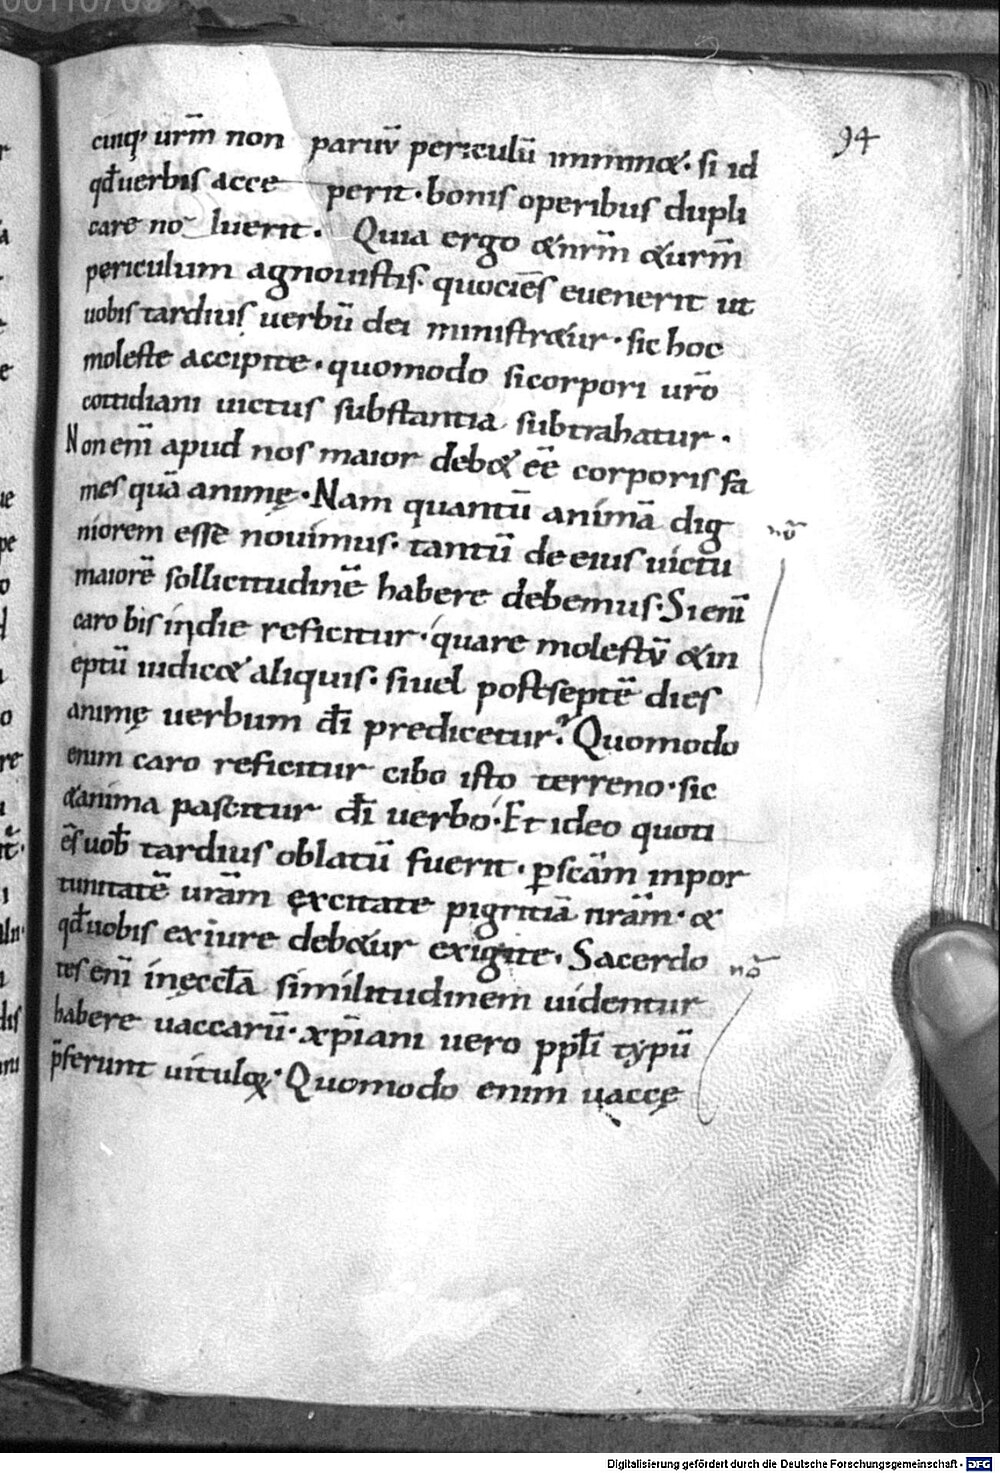 94
cuiq; urm̄ non paruū periculū imminet. si id
qđ uerbis acceperit. bonis operibus dupli
care noluerit. Quia ergo &nrm̄ &urm̄
periculum agnouistis. quociēs euenerit ut
uobis tardius uerbū dei ministr&ur. sic hoc
moleste accipite. quomodo si corpori urō
cottidiani uictus substantia subtrahatur.
Non enī apud nos maior deb& eē corporis fa
mes quā animę. Nam quantū animā dig
niorem esse nouimus. tantū de eius uictu
maiorē sollicitudinē habere debemus. Si enī
caro bis in die reficitur. quare molestū & in
eptū iudic& aliquis. si uel post septē dies
animę uerbum dī predicetur? Quomodo
enim caro reficitur cibo isto terreno. sic
&anima pascitur dī uerbo. Et ideo quoti
ēs uob̄ tardius oblatū fuerit. ꝑ scām inpor
tunitatē urām excitate pigritiā nrām. &
qđ uobis ex iure deb&ur exigite. Sacerdo
tes enī in ęccłā similitudinem uidentur
habere uaccarū. xp̄iani uero ppłi typū
p̄ferunt uituloꝝ. Quomodo enim uaccę
nō
nō
Digitalisierung gefördert durch die Deutsche Forschungsgemeinschaft - DFG